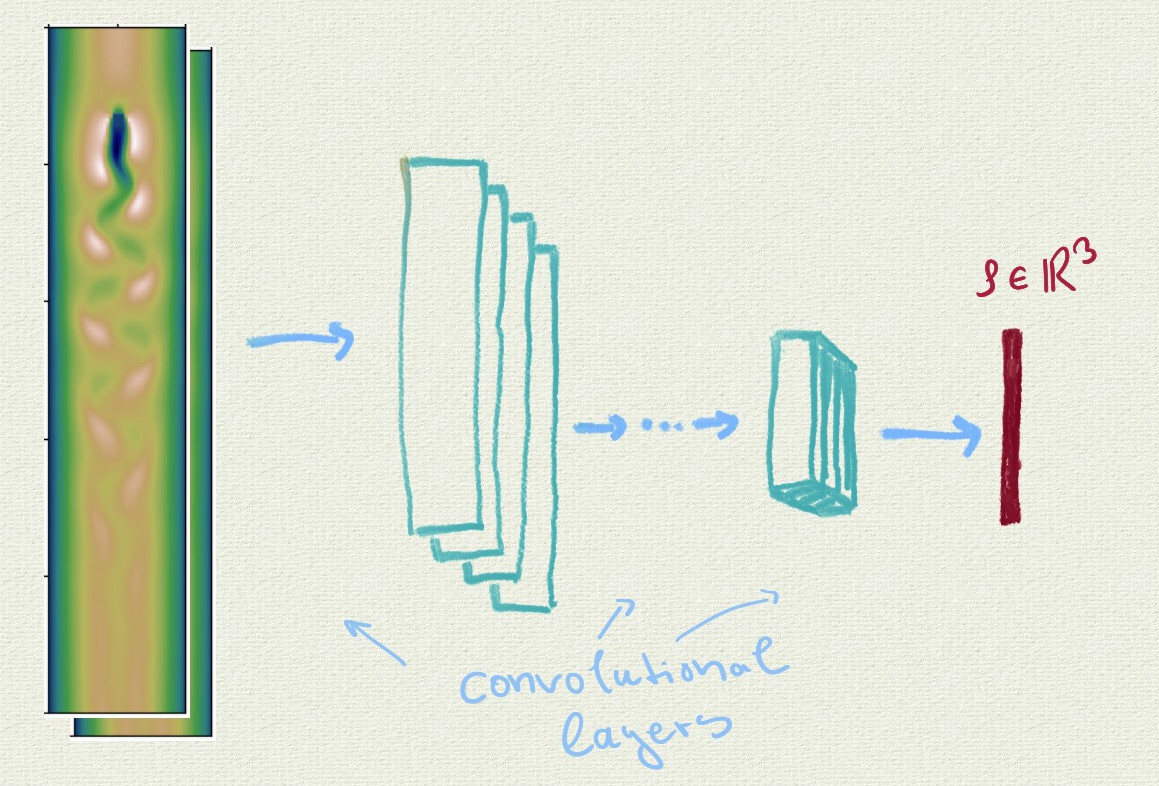 ρ ∈ ℝ³
convolutional
layers